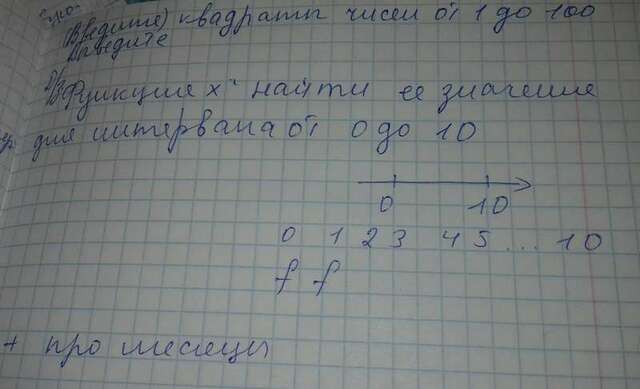 (Введите) квадраты чисел от 1 до 100
Выведите
2) Функция x найти ее значение
для интервала от 0 до 10
0 10
0 1 2 3 4 5 ... 10
f f
+ про месяцы